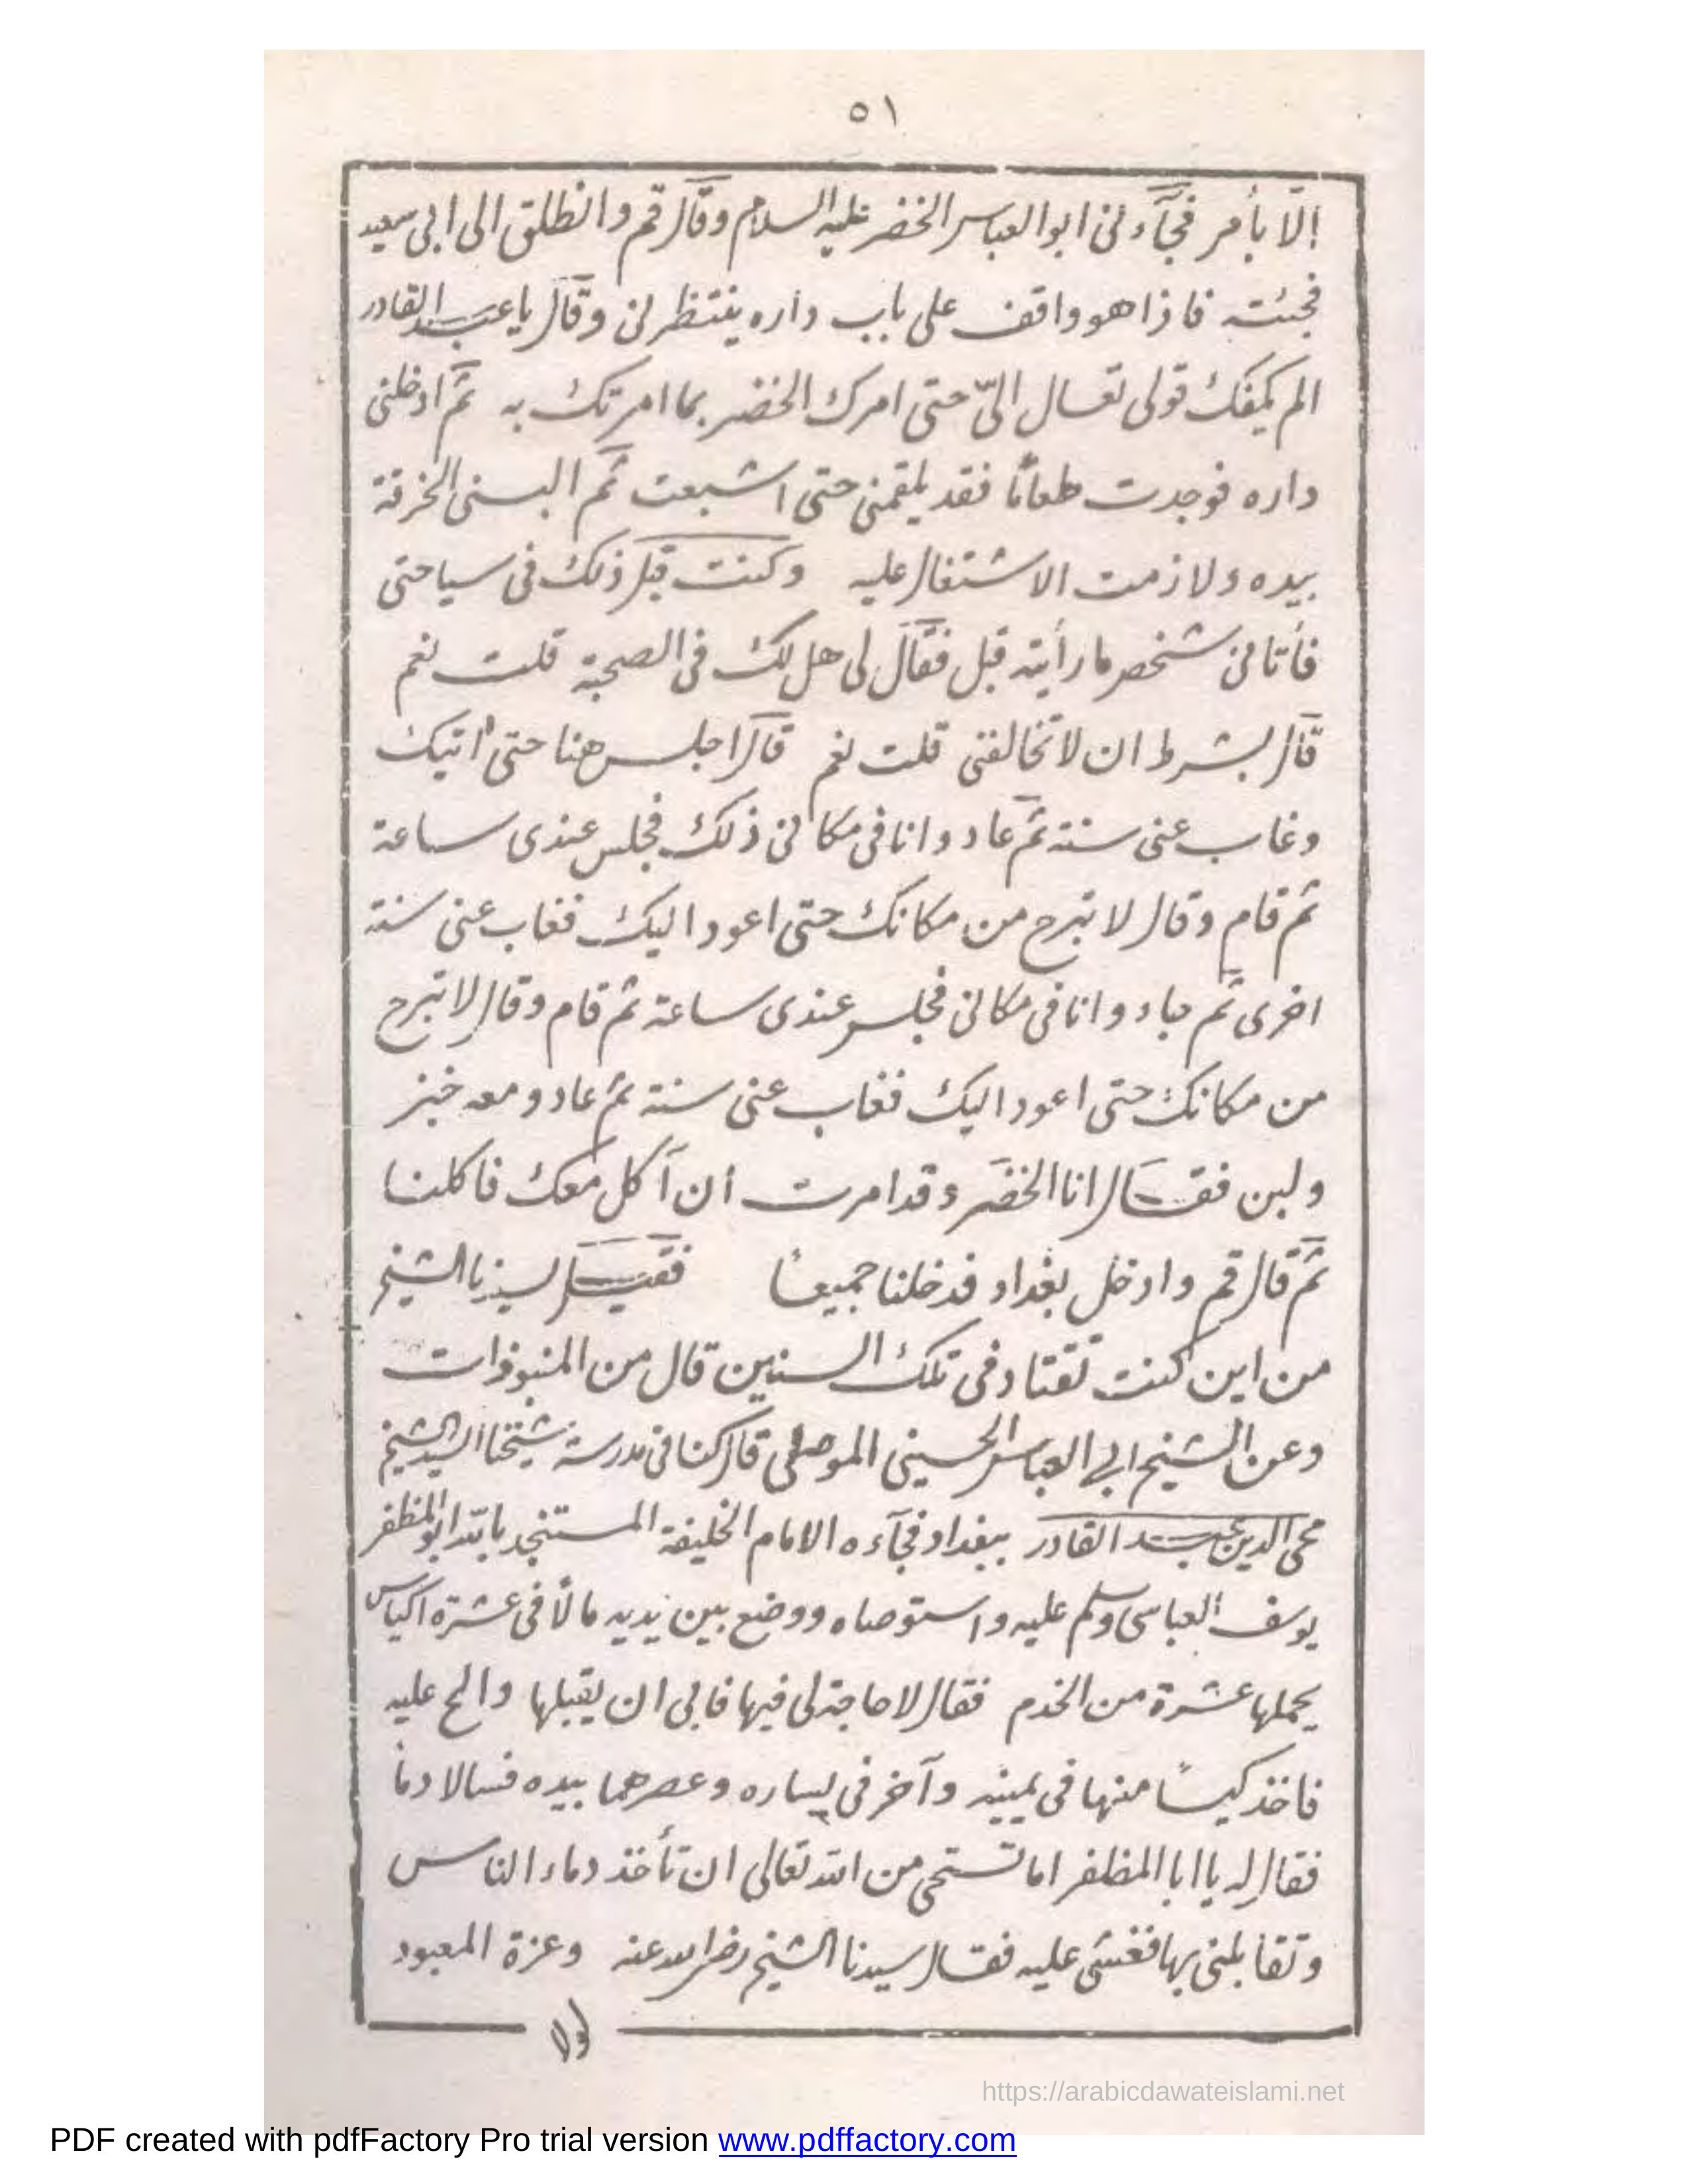 ٥١
إلّا بأمر فجآء نى ابو العباس الخضر عليه السلام وقال قم وانطلق الى ابى سعيد
فجئته فاذا هو واقف على باب داره ينتظرنى وقال يا عبد القادر
الم يكفك قولى تعال الىّ حتى امرك الخضر بما امرتك به ثمّ ادخلنى
داره فوجدت طعامًا فقد يلقمنى حتى اشبعت ثم البسنى الخرقة
بيده ولازمت الاشتغال عليه وكنت قبل ذلك فى سياحتى
فأتانى شخص ما رأيته قبل فقال لى هل لك فى الصحبة قلت نعم
قال بشرط ان لا تخالفنى قلت نعم قال اجلس هنا حتى اتيك
وغاب عنى سنة ثم عاد وانا فى مكانى ذلك فجلس عندى ساعة
ثم قام وقال لا تبرح من مكانك حتى اعود اليك فغاب عنى سنة
اخرى ثم جاء وانا فى مكانى فجلس عندى ساعة ثم قام وقال لا تبرح
من مكانك حتى اعود اليك فغاب عنى سنة ثم عاد ومعه خبز
ولبن فقال انا الخضر وقد امرت أن آكل معك فاكلنا
ثم قال قم وادخل بغداد فدخلنا جميعًا فقيل لسيدنا الشيخ
من اين كنت تقتاد فى تلك السنين قال من المنبوذات
وعن الشيخ ابى العباس الحسينى الموصلى قال كنا فى مدرسة شيخنا السيد الشيخ
محى الدين عبد القادر ببغداد فجآءه الامام الخليفة المستنجد بالله ابو المظفر
يوسف العباسى وسلم عليه واستوصاه ووضع بين يديه مالًا فى عشرة اكياس
يحملها عشرة من الخدم فقال لا حاجة لى فيها فابى ان يقبلها والح عليه
فاخذ كيسًا منها فى يمينه وآخر فى يساره وعصرهما بيده فسالا دما
فقال له يا ابا المظفر اما تستحى من الله تعالى ان تأخذ دماء الناس
وتقابلنى بها فغشى عليه فقال سيدنا الشيخ رضى الله عنه وعزة المعبود
لولا
https://arabicdawateislami.net
PDF created with pdfFactory Pro trial version www.pdffactory.com